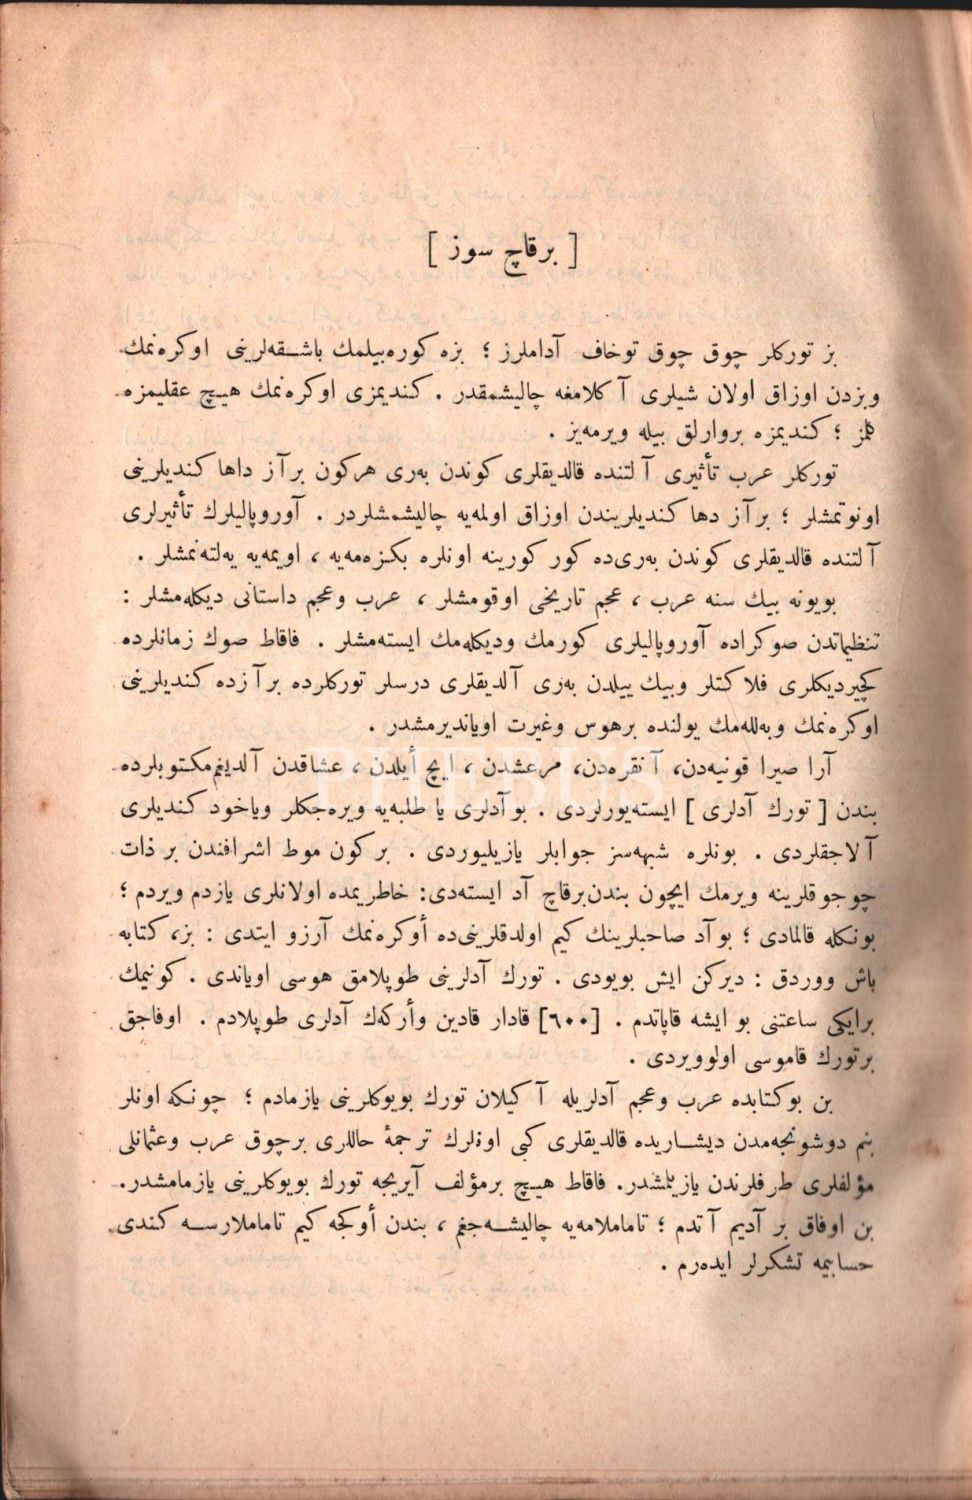 [ برقاچ سوز ]
بز توركلر چوق چوق توخاف آداملرز ؛ بزه كوره‌بيلمك باشقه‌لرينى اوكره‌نمك
وبزدن اوزاق اولان شيلرى آ كلامغه چاليشمقدر . كنديمزى اوكره‌نمك هيچ عقليمزه
كلمز ؛ كنديمزه بروارلق بيله ويرمه‌يز .
توركلر عرب تأثيرى آ لتنده قالديقلرى كوندن به‌رى هركون برآز داها كنديلرينى
اونوتمشلر ؛ برآز دها كنديلريندن اوزاق اولمه‌يه چاليشمشلردر . آوروپاليلرك تأثيرلرى
آ لتنده قالديقلرى كوندن به‌رى‌ده كور كورينه اونلره بكزه‌مه‌يه ، اويمه‌يه يه‌لته‌نمشلر .
بويونه بيك سنه عرب ، عجم تاريخى اوقومشلر ، عرب وعجم داستانى ديكله‌مشلر :
تنظيماتدن صوكراده آوروپاليلرى كورمك وديكله‌مك ايسته‌مشلر . فاقاط صوك زمانلرده
كچيرديكلرى فلا كتلر وبيك ييلدن به‌رى آ لديقلرى درسلر توركلرده برآزده كنديلرينى
اوكره‌نمك وبه‌لله‌مك يولنده برهوس وغيرت اوياندیرمشدر .
آرا صيرا قونيه‌دن، آ نقره‌دن، مرعشدن ، ايچ أيلدن ، عشاقدن آلديغم‌مكتوبلرده
بندن [ تورك آدلرى ] ايسته‌يورلردى . بوآدلرى يا طلبه‌يه ويره‌جكلر وياخود كنديلرى
آ لاجقلردى . بونلره شبهه‌سز جوابلر يازيليوردى . بركون موط اشرافندن برذات
چوجوقلرينه ويرمك ايچون بندن‌برقاچ آد ايسته‌دى: خاطريمده اولانلرى يازدم ويردم ؛
بونكله قالمادى ؛ بوآد صاحبلرينك كيم اولدقلرينى‌ده أوكره‌نمك آرزو ايتدى : بز، كتابه
باش ووردق : ديركن ايش بويودى . تورك آدلرينى طوپلامق هوسى اوياندى . كونيمك
برايكى ساعتنى بو ايشه قاپاتدم . [٦٠٠] قادار قادين وأركه‌ك آدلرى طوپلادم . اوفاجق
برتورك قاموسى اولوويردى .
بن بوكتابده عرب وعجم آدلريله آ كيلان تورك بويوكلرينى يازمادم ؛ چونكه اونلر
بنم دوشونجه‌مدن ديشاريده قالديقلرى كبى اونلرك ترجمهٔ حاللرى برچوق عرب وعثمانلى
مؤلفلرى طرفلرندن يازيلمشدر. فاقاط هيچ برمؤلف آيريجه تورك بويوكلرينى يازمامشدر.
بن اوفاق بر آديم آ تدم ؛ تاماملامه‌يه چاليشه‌جغم ، بندن أوكجه كيم تاماملارسه كندى
حسابيمه تشكرلر ايده‌رم .
PHEBUS